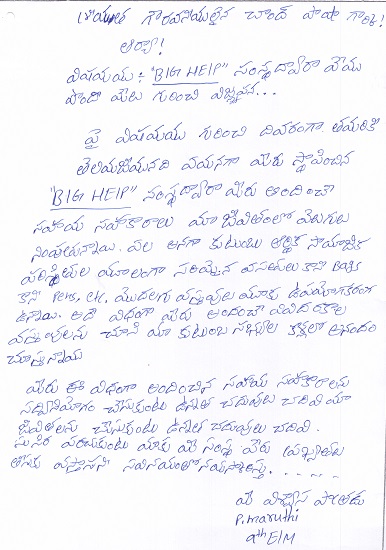 గౌరవనీయులైన చాంద్ పాషా గారికి!
ఆర్యా!
విషయము :- "BIG HELP" సంస్థ ద్వారా మేము
పొందిన మేలు గురించి విజ్ఞప్తి...
పై విషయము గురించి వివరంగా తమరికి
తెలియజేయునది ఏమనగా మీరు స్థాపించిన
"BIG HELP" సంస్థ ద్వారా మీరు అందించే
సహాయ సహకారాలు మా జీవితంలో వెలుగులు
నింపుతున్నాయి. ఎలా అనగా కుటుంబ ఆర్థిక సామాజిక
పరిస్థితుల మూలంగా సరియైన వసతులు కాని Books
కాని Pens, etc. మొదలగు వస్తువులు మాకు ఉపయోగకరంగా
ఉన్నాయి. అదే విధంగా మీరు అందించే వివిధ రకాల
వస్తువులను చూసి మా కుటుంబ సభ్యుల కళ్లలో ఆనందం
చూస్తున్నాము
మీరు ఈ విధంగా అందించిన సహాయ సహకారాలను
సద్వినియోగం చేసుకుంటూ ఉన్నత చదువులు చదివి మా
జీవితాలను చేసుకుంటూ ఉన్నత చదువులు చదివి.
మాకు మీ సంస్థ మీరు
సవినయంతో నమస్కారిస్తూ......
మీ విశ్వాస పాత్రుడు
P. Maruthi
9th E/M